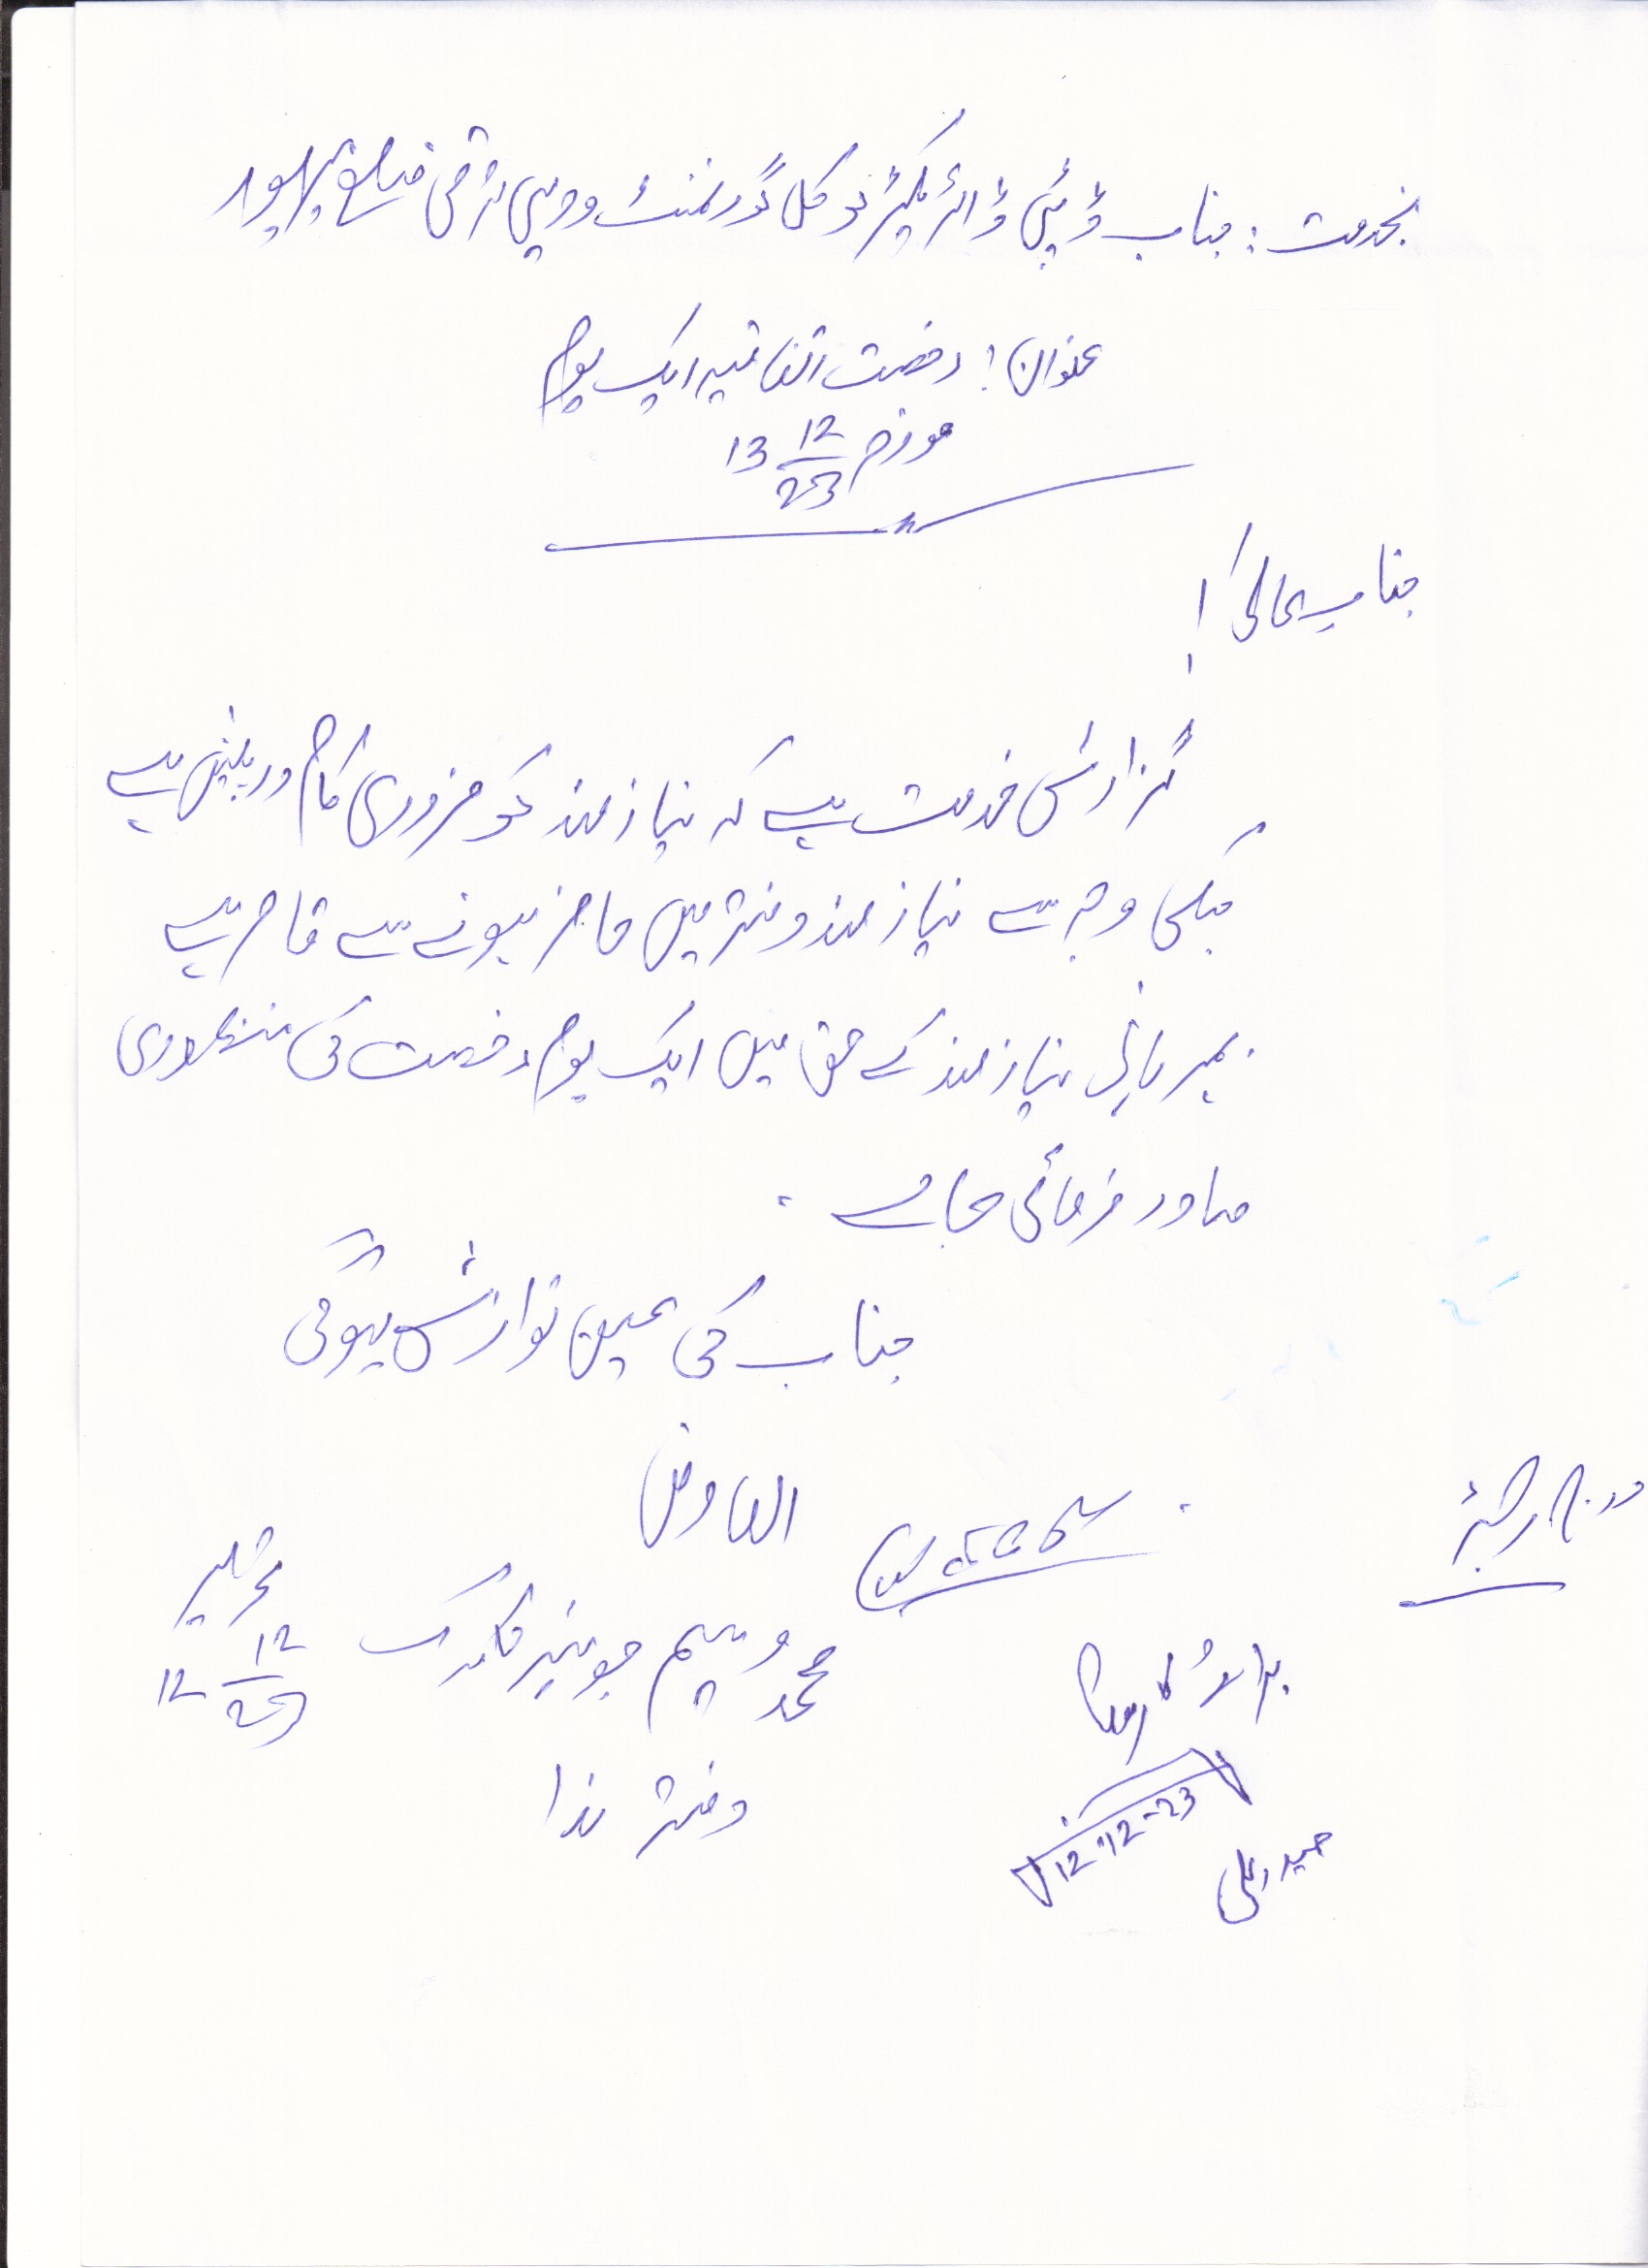 بخدمت: جناب ڈپٹی ڈائریکٹر لوکل گورنمنٹ و دیہی ترقی ضلع
عنوان: رخصت اتفاقیہ ایک یوم
مورخہ 13 12/23
جناب عالی!
گزارش خدمت ہے کہ نیازمند کو ضروری کام درپیش ہے
جسکی وجہ سے نیازمند دفتر میں حاضر ہونے سے قاصر ہے
بمہربانی نیازمند کے حق میں ایک یوم رخصت کی منظوری
صادر فرمائی جائے.
جناب کی عین نوازش ہوگی
العارض
درج رجسٹر
محمد وسیم جونیئر کلرک
تحریر 12 12/23
دفتر ہذا
12-12-23
حیدر علی